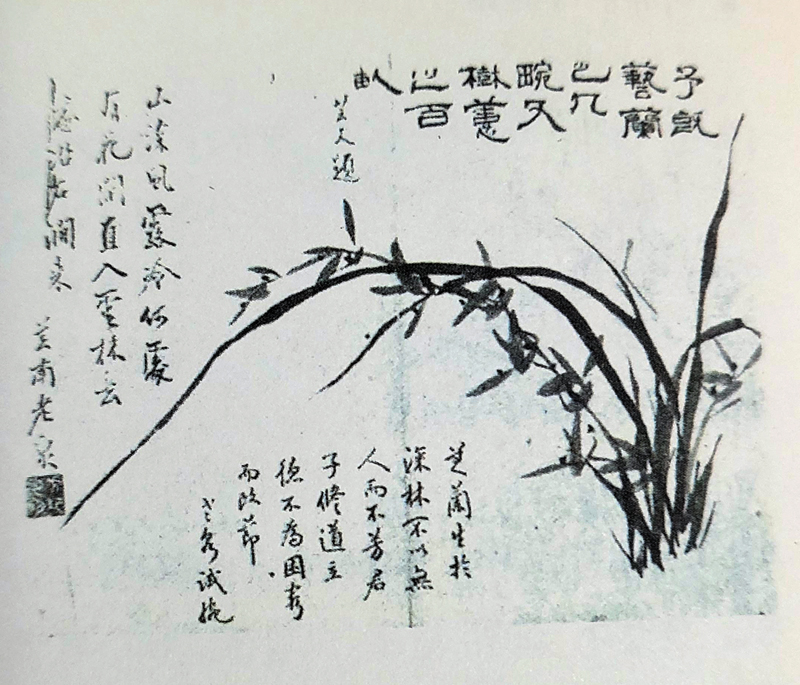 予既
藝蘭
已九
畹又
樹蕙
之百
畝
題
芝蘭生於
深林不以無
人而不芳君
子修道立
德不為困窮
而改節
試
山深風露冷何處
有花開直入雲林去
沿古澗來
南老